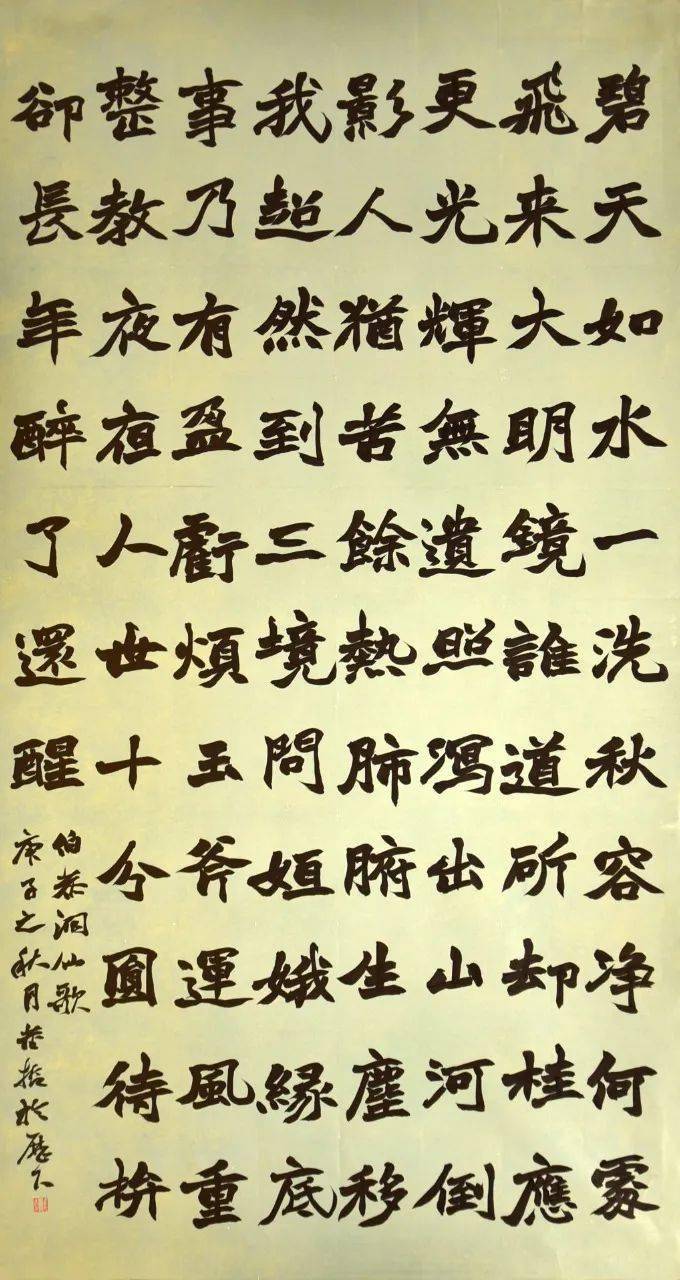 碧天如水一洗秋容净何處
飛来大明鏡誰道斫却桂應
更光輝無遺照瀉出山河倒
影人猶苦餘熱肺腑生塵移
我超然到三境問姮娥緣底
事乃有盈虧煩玉斧運風重
整教夜夜人世十分圓待拚
卻長年醉了還醒
伯恭洞仙歌
庚子之秋月於歷下